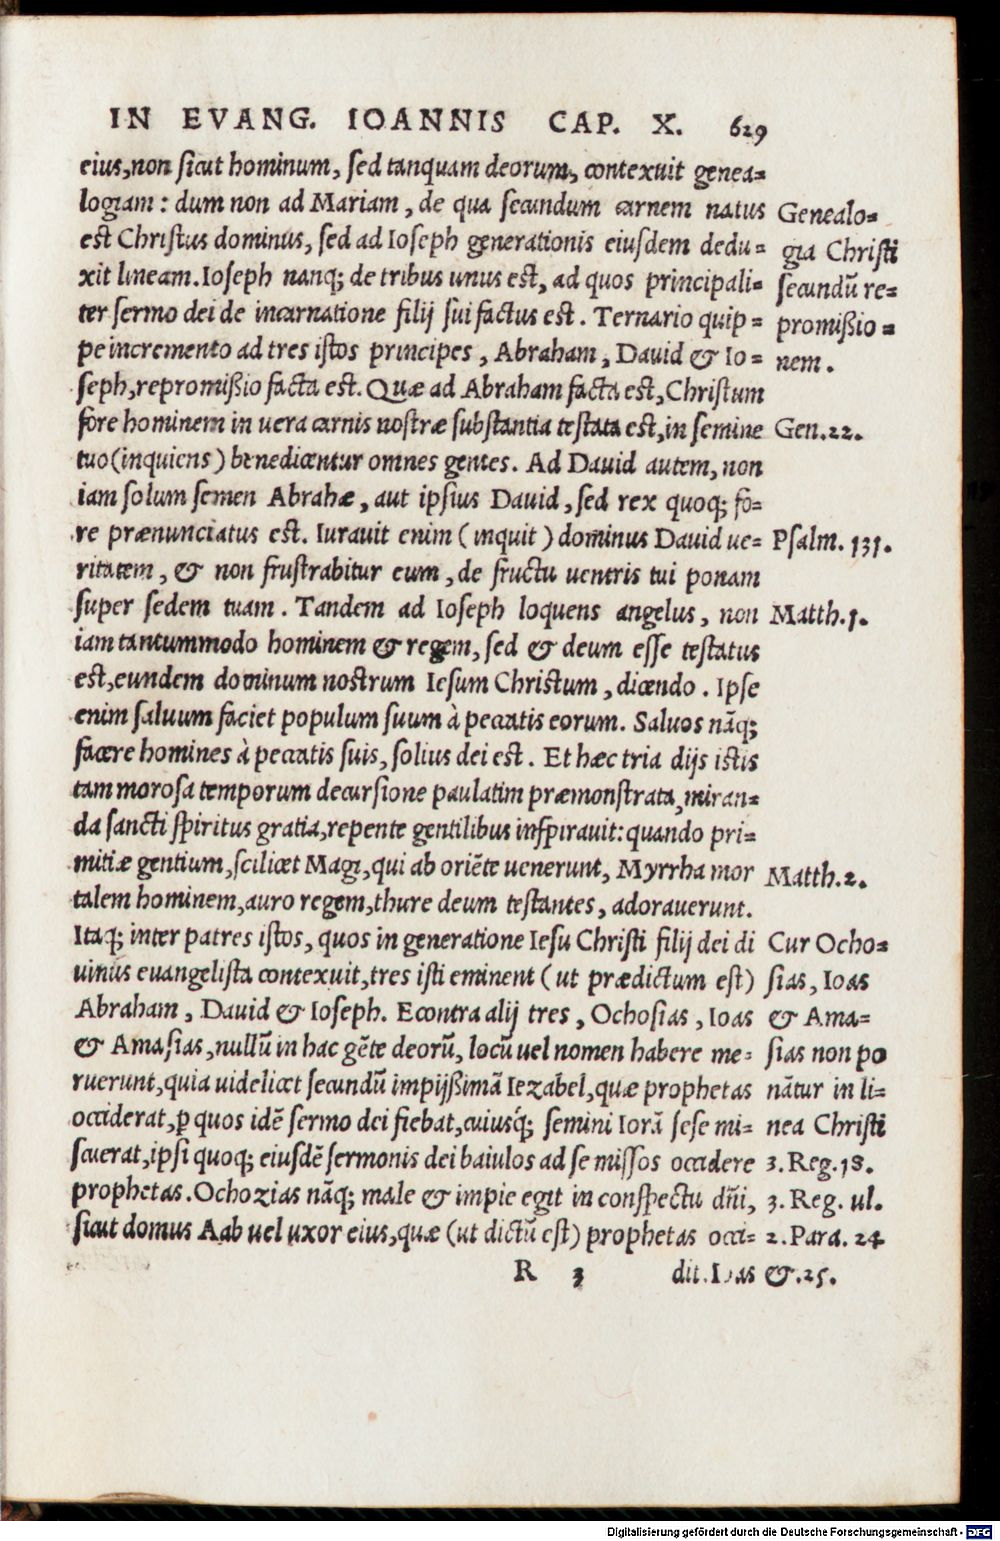 IN EVANG. IOANNIS CAP. X. 629
eius, non sicut hominum, sed tanquam deorum, contexuit genea=
logiam: dum non ad Mariam, de qua secundum carnem natus
est Christus dominus, sed ad Ioseph generationis eiusdem dedu=
xit lineam. Ioseph nanq; de tribus unus est, ad quos principali=
ter sermo dei de incarnatione filij sui factus est. Ternario quip=
pe incremento ad tres istos principes, Abraham, Dauid & Io=
seph, repromißio facta est. Quæ ad Abraham facta est, Christum
fore hominem in uera carnis nostræ substantia testata est, in semine
tuo (inquiens) benedicentur omnes gentes. Ad Dauid autem, non
iam solum semen Abrahæ, aut ipsius Dauid, sed rex quoq; fo=
re prænunciatus est. Iurauit enim (inquit) dominus Dauid ue=
ritatem, & non frustrabitur eum, de fructu uentris tui ponam
super sedem tuam. Tandem ad Ioseph loquens angelus, non
iam tantummodo hominem & regem, sed & deum esse testatus
est, eundem dominum nostrum Iesum Christum, dicendo. Ipse
enim saluum faciet populum suum à peccatis eorum. Saluos nãq;
facere homines à peccatis suis, solius dei est. Et hæc tria dijs istis
tam morosa temporum decursione paulatim præmonstrata, miran=
da sancti spiritus gratia, repente gentilibus inspirauit: quando pri=
mitiæ gentium, scilicet Magi, qui ab oriẽte uenerunt, Myrrha mor
talem hominem, auro regem, thure deum testantes, adorauerunt.
Itaq; inter patres istos, quos in generatione Iesu Christi filij dei di
uinus euangelista contexuit, tres isti eminent (ut prædictum est)
Abraham, Dauid & Ioseph. Econtra alij tres, Ochosias, Ioas
& Amasias, nullũ in hac gẽte deorũ, locũ uel nomen habere me=
ruerunt, quia uidelicet secundũ impijßimã Iezabel, quæ prophetas
occiderat, ꝑ quos idẽ sermo dei fiebat, cuiusq́; semini Iorã sese mi=
scuerat, ipsi quoq; eiusdẽ sermonis dei baiulos ad se missos occidere
prophetas. Ochozias nãq; male & impie egit in conspectu dñi,
sicut domus Aab uel uxor eius, quæ (ut dictũ est) prophetas occi=
R 3 dit. Ioas
Genealo=
gia Christi
secundũ re=
promißio=
nem.
Gen. 22.
Psalm. 131.
Matth. 1.
Matth. 2.
Cur Ocho=
sias, Ioas
& Ama=
sias non po
nãtur in li=
nea Christi
3. Reg. 18.
3. Reg. ul.
2. Para. 24
&. 25.
Digitalisierung gefördert durch die Deutsche Forschungsgemeinschaft - DFG